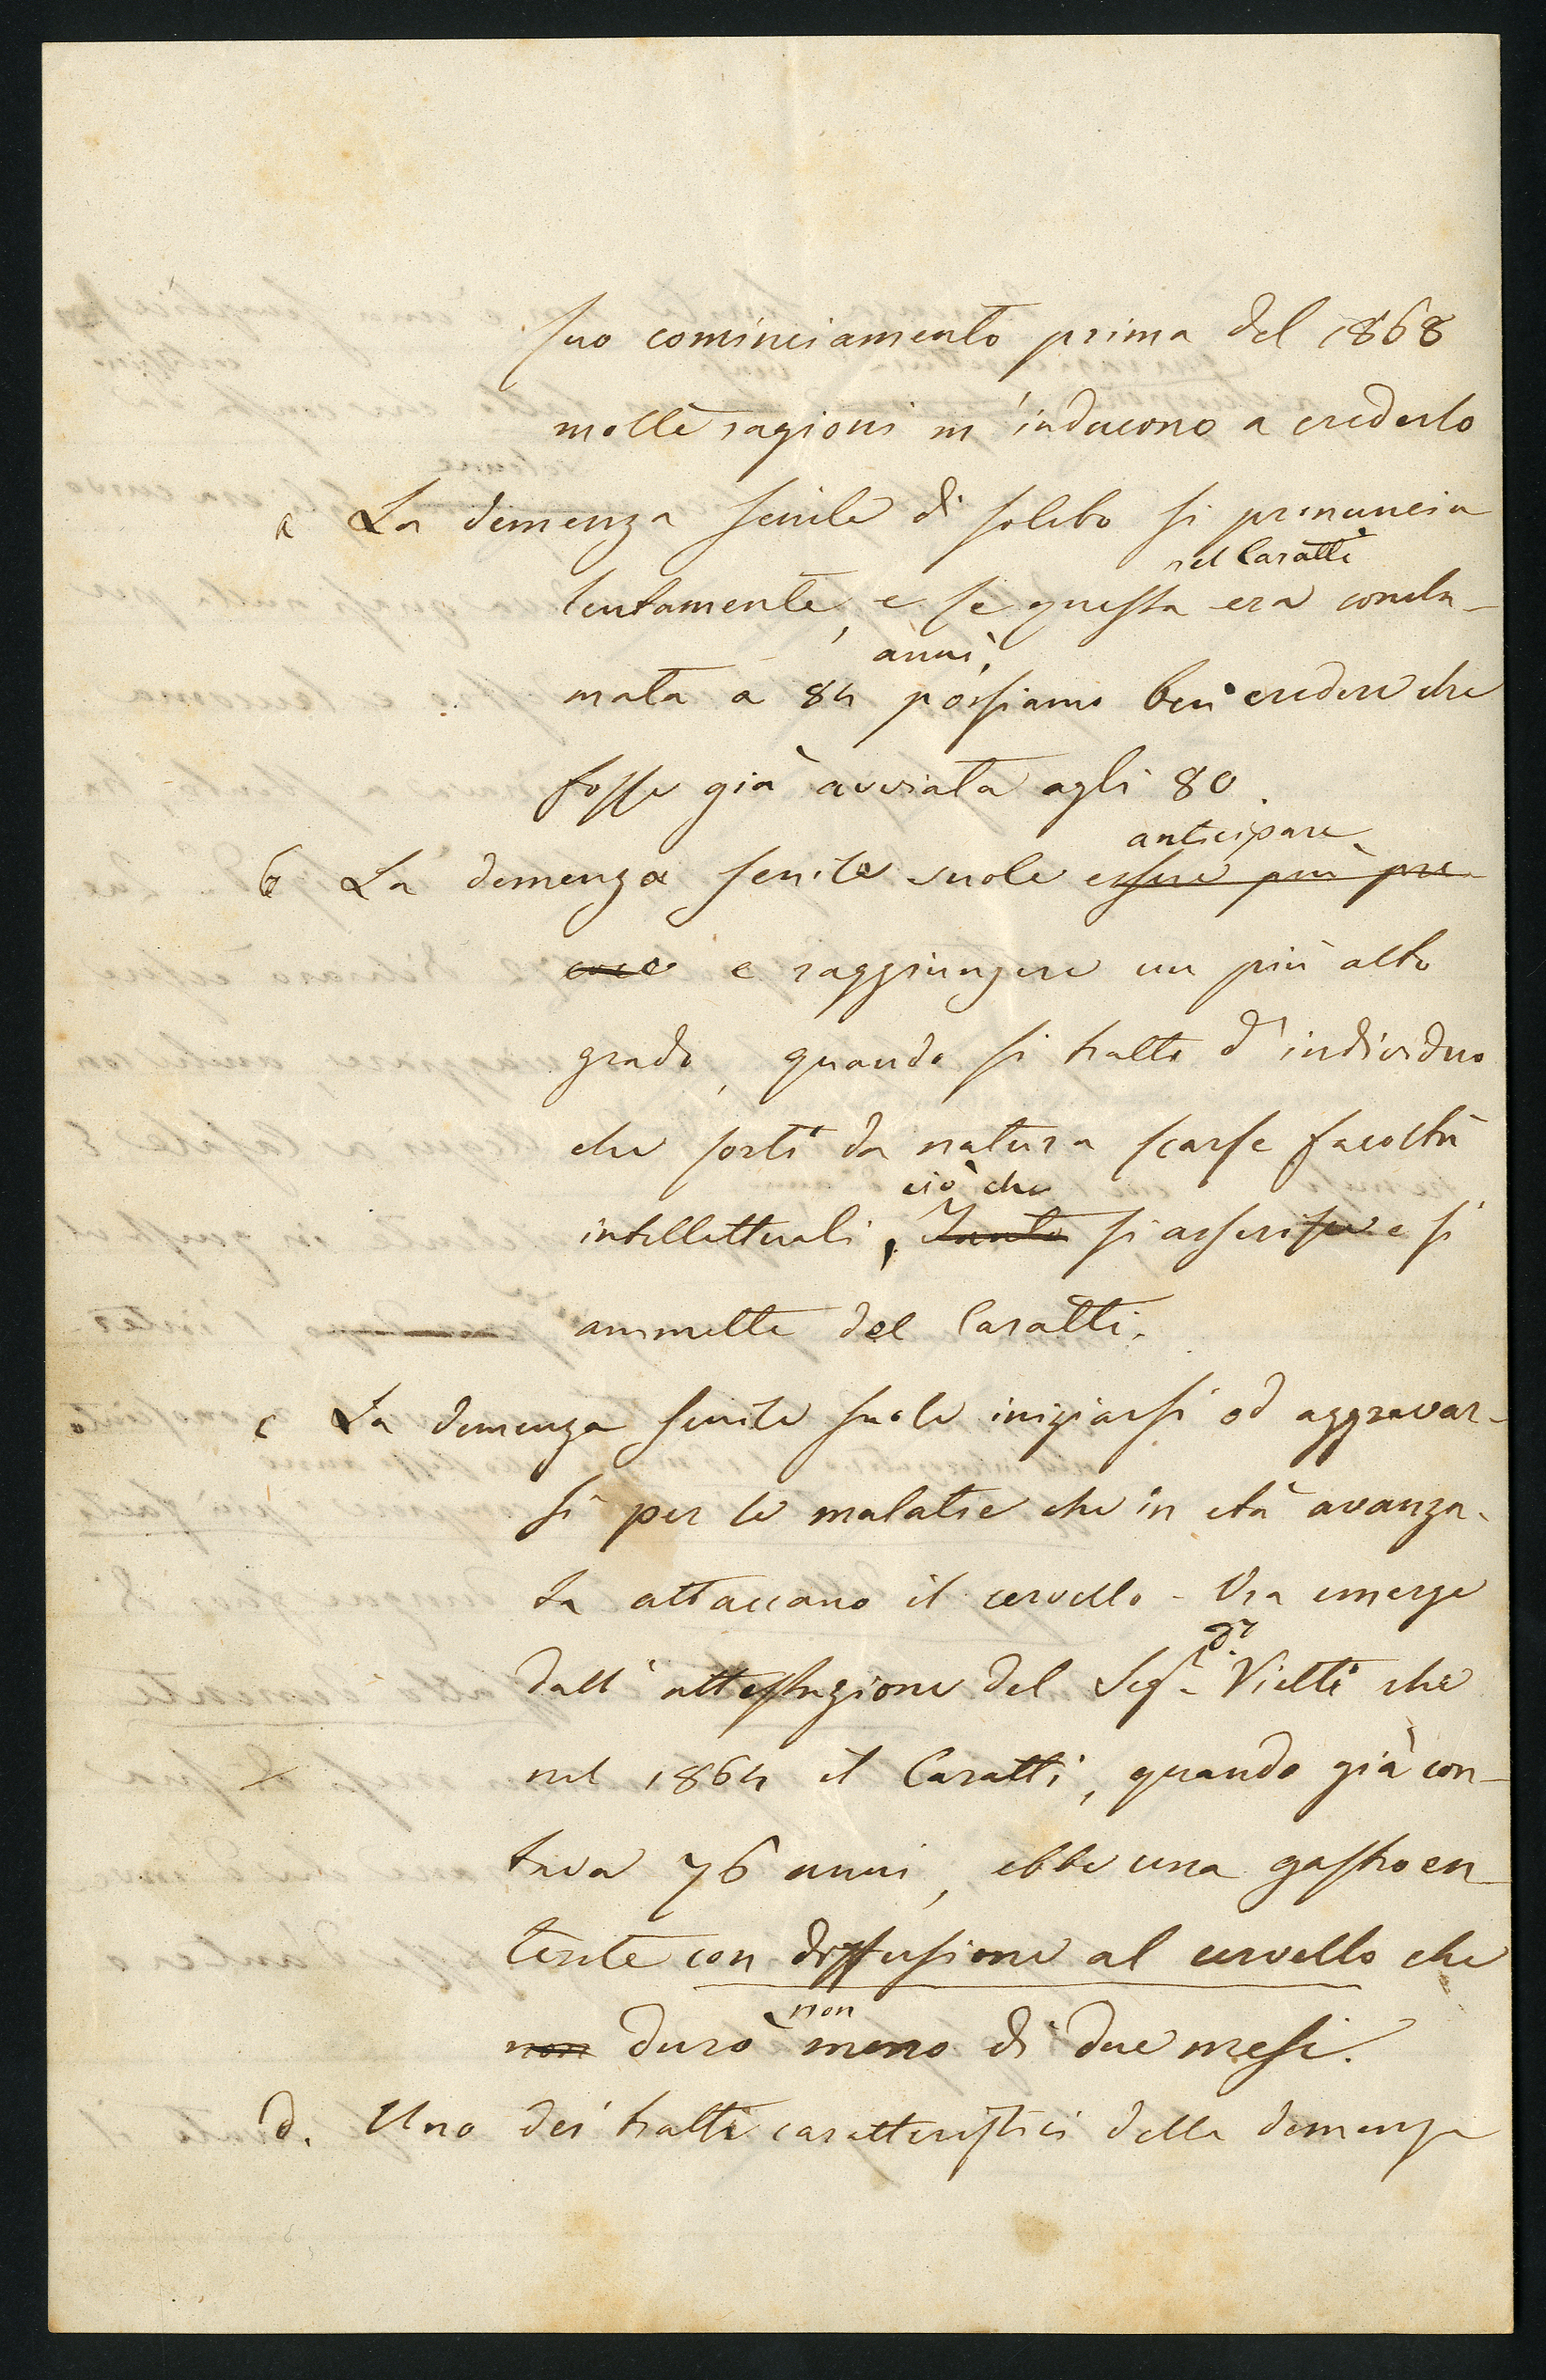 suo cominciamento prima del 1868
molte ragioni m'inducono a crederlo
a La demenza senile di solito si pronuncia
nel Caratti
lentamente, e se questa era concla-
anni,
mata a 84 possiamo ben credere che
fosse già avviata agli 80.
anticipare
b La demenza senile suole essere più pre-
coce e raggiungere un più alto
grado, quando si tratta d'individuo
che sortì da natura scarse facoltà
ciò che
intellettuali, Tanto si asserisce e si
ammette del Caratti.
c La demenza senile suole iniziarsi od aggravar-
si per le malatie che in età avanza-
ta attaccano il cervello - Ora emerge
dr
dall'attestazione del Sigr. Vietti che
nel 1864 il Caratti, quando già con-
tava 76 anni, ebbe una gastroen-
terite con diffusione al cervello che
non
non durò meno di due mesi.
d. Uno dei tratti caratteristici della demenza